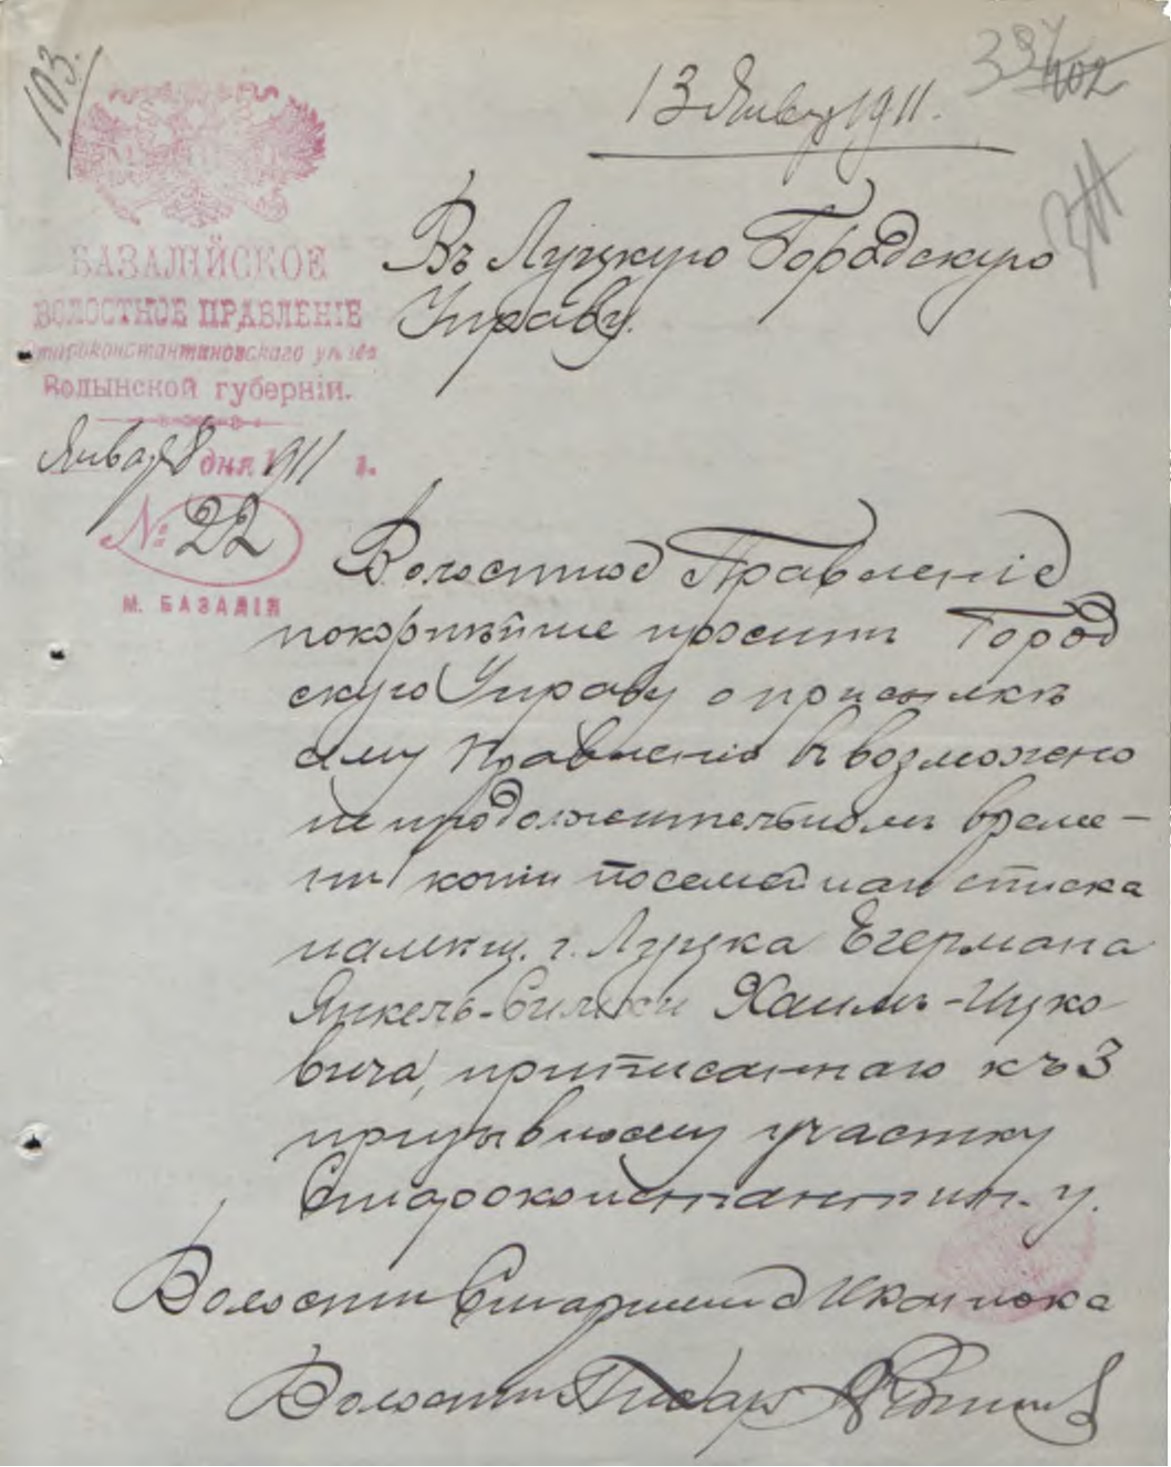 103.
397
402
13 Янвр 1911.
БАЗАЛІЙСКОЕ
ВОЛОСТНОЕ ПРАВЛЕНІЕ
Староконстантиновскаго уѣзда
Волынской губерніи.
Январ 8 дня 1911 г.
№ 22
М. БАЗАЛІЯ
Въ Луцкую Городскую
Управу.
Волостное Правленіе
покорнѣйше просить Город
скую Управу о присылкѣ
сему Правленію в возможно
непродолжительномъ време-
ни копіи посемейнаго списка
мѣщ. г. Луцка Егермана
Янкель- Хаимъ-Ицко
вича, приписаннаго къ 3
призывному участку
Староконстантин. у.
Волостн Старшина
Волостн Писарь